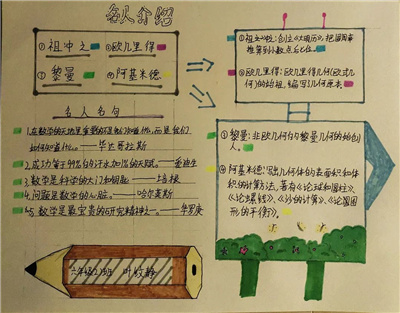 名人介绍
①祖冲之 ②欧几里得
③黎曼 ④阿基米德
①祖冲之:创立《大明历》,把圆周率
推算到小数点后七位。
②欧几里得:欧几里得几何(欧式几
何)的始祖,编写《几何原本》
③黎曼:非欧几何的黎曼几何的始创
人。
④阿基米德:写出几何体的表面积和体
积的计算方法,著有《论球和圆柱》、
《论螺线》、《沙的计算》、《论图
形的平衡》。
名人名句
1.在数学的天地里重要的不是我们知道什么,而是我们
如何知道什么。——毕达哥拉斯
2.成功等于99%的汗水加1%的天赋。——爱迪生
3.数学是科学的大门和钥匙——培根
4.问题是数学的心脏。——哈尔莫斯
5.数学是最宝贵的研究精神之一。——华罗庚
六年级(2)班 叶